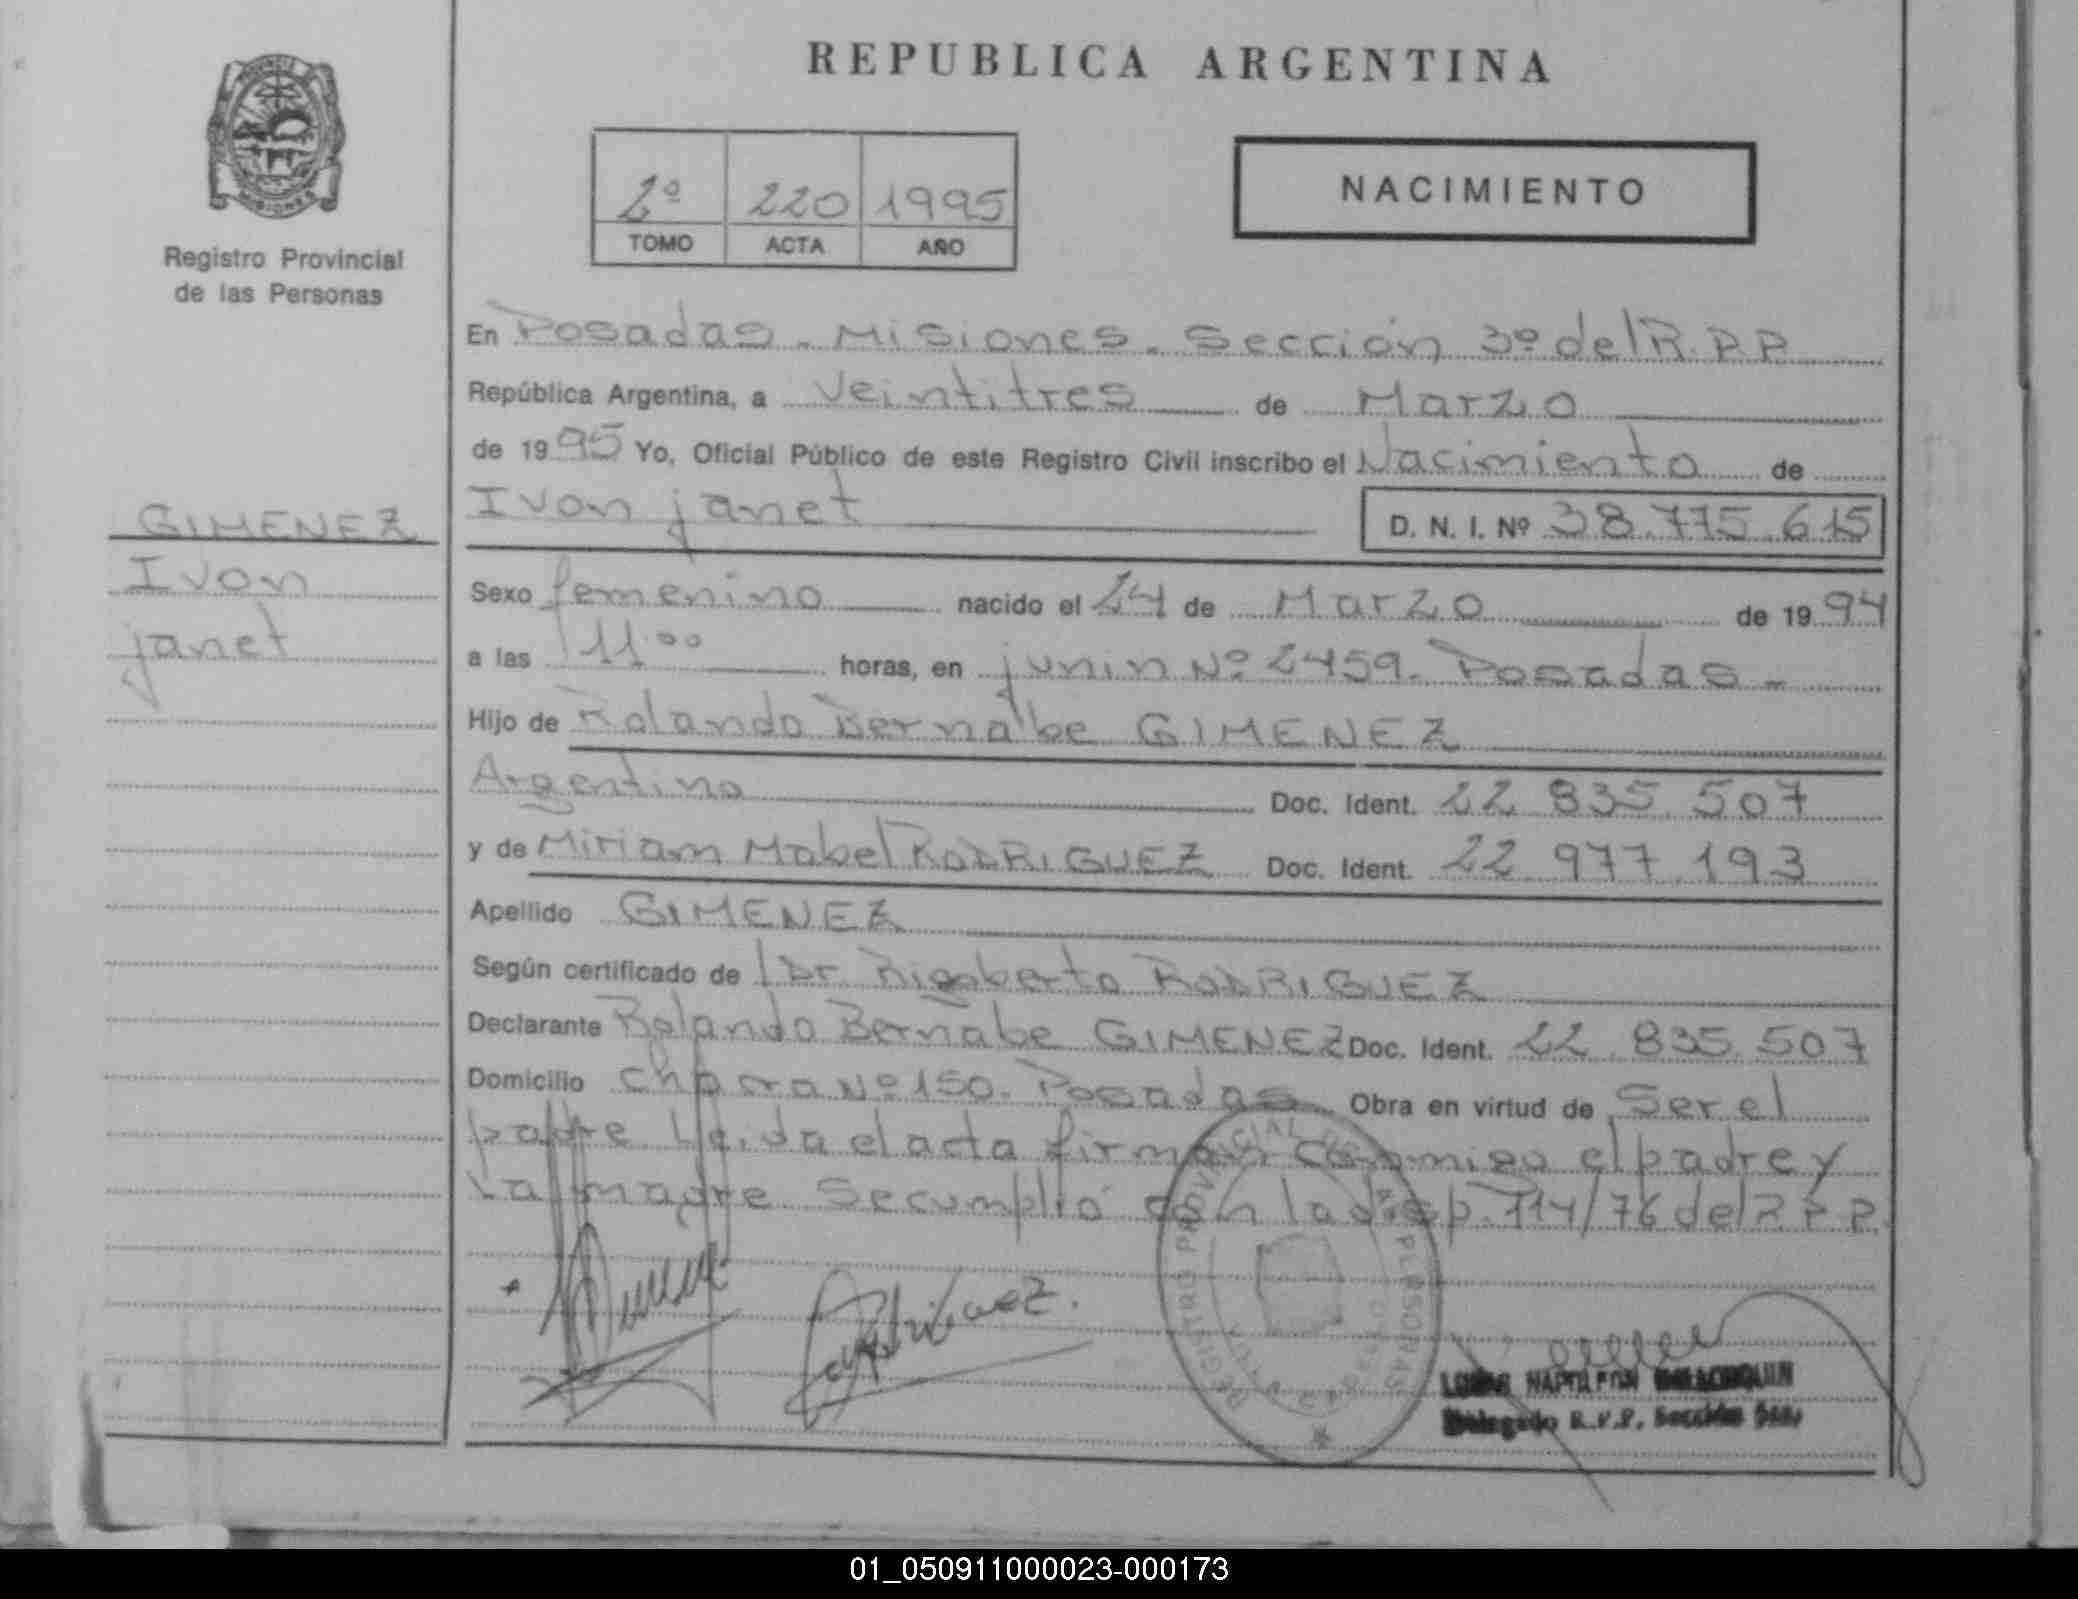 REPUBLICA ARGENTINA
PROVINCIA DE
MISIONES
Registro Provincial
de las Personas
2º 220 1995
TOMO ACTA AÑO
NACIMIENTO
En Posadas - Misiones - Sección 3º del R.P.P
República Argentina, a Veintitres de Marzo
de 1995 Yo, Oficial Público de este Registro Civil inscribo el Nacimiento de
Ivon janet D. N. I. Nº 38.775.615
GIMENEZ
Ivon
janet
Sexo femenino nacido el 24 de Marzo de 1994
a las 11.00 horas, en junin Nº 2459. Posadas -
Hijo de Rolando Bernabe GIMENEZ
Argentino Doc. Ident. 22 835 507
y de Miriam Mabel RODRIGUEZ Doc. Ident. 22 977 193
Apellido GIMENEZ
Según certificado de Dr. Rigoberto RODRIGUEZ
Declarante Rolando Bernabe GIMENEZ Doc. Ident. 22 835 507
Domicilio Chacra Nº 150. Posadas Obra en virtud de Ser el
padre Leida el acta firman conmigo el padre y
La madre Se cumplió con la disp. 714/76 del R P P
REGISTRO PROVINCIAL DE PERSONAS
Delegado R.P.P. Sección 3ra.
01_050911000023-000173